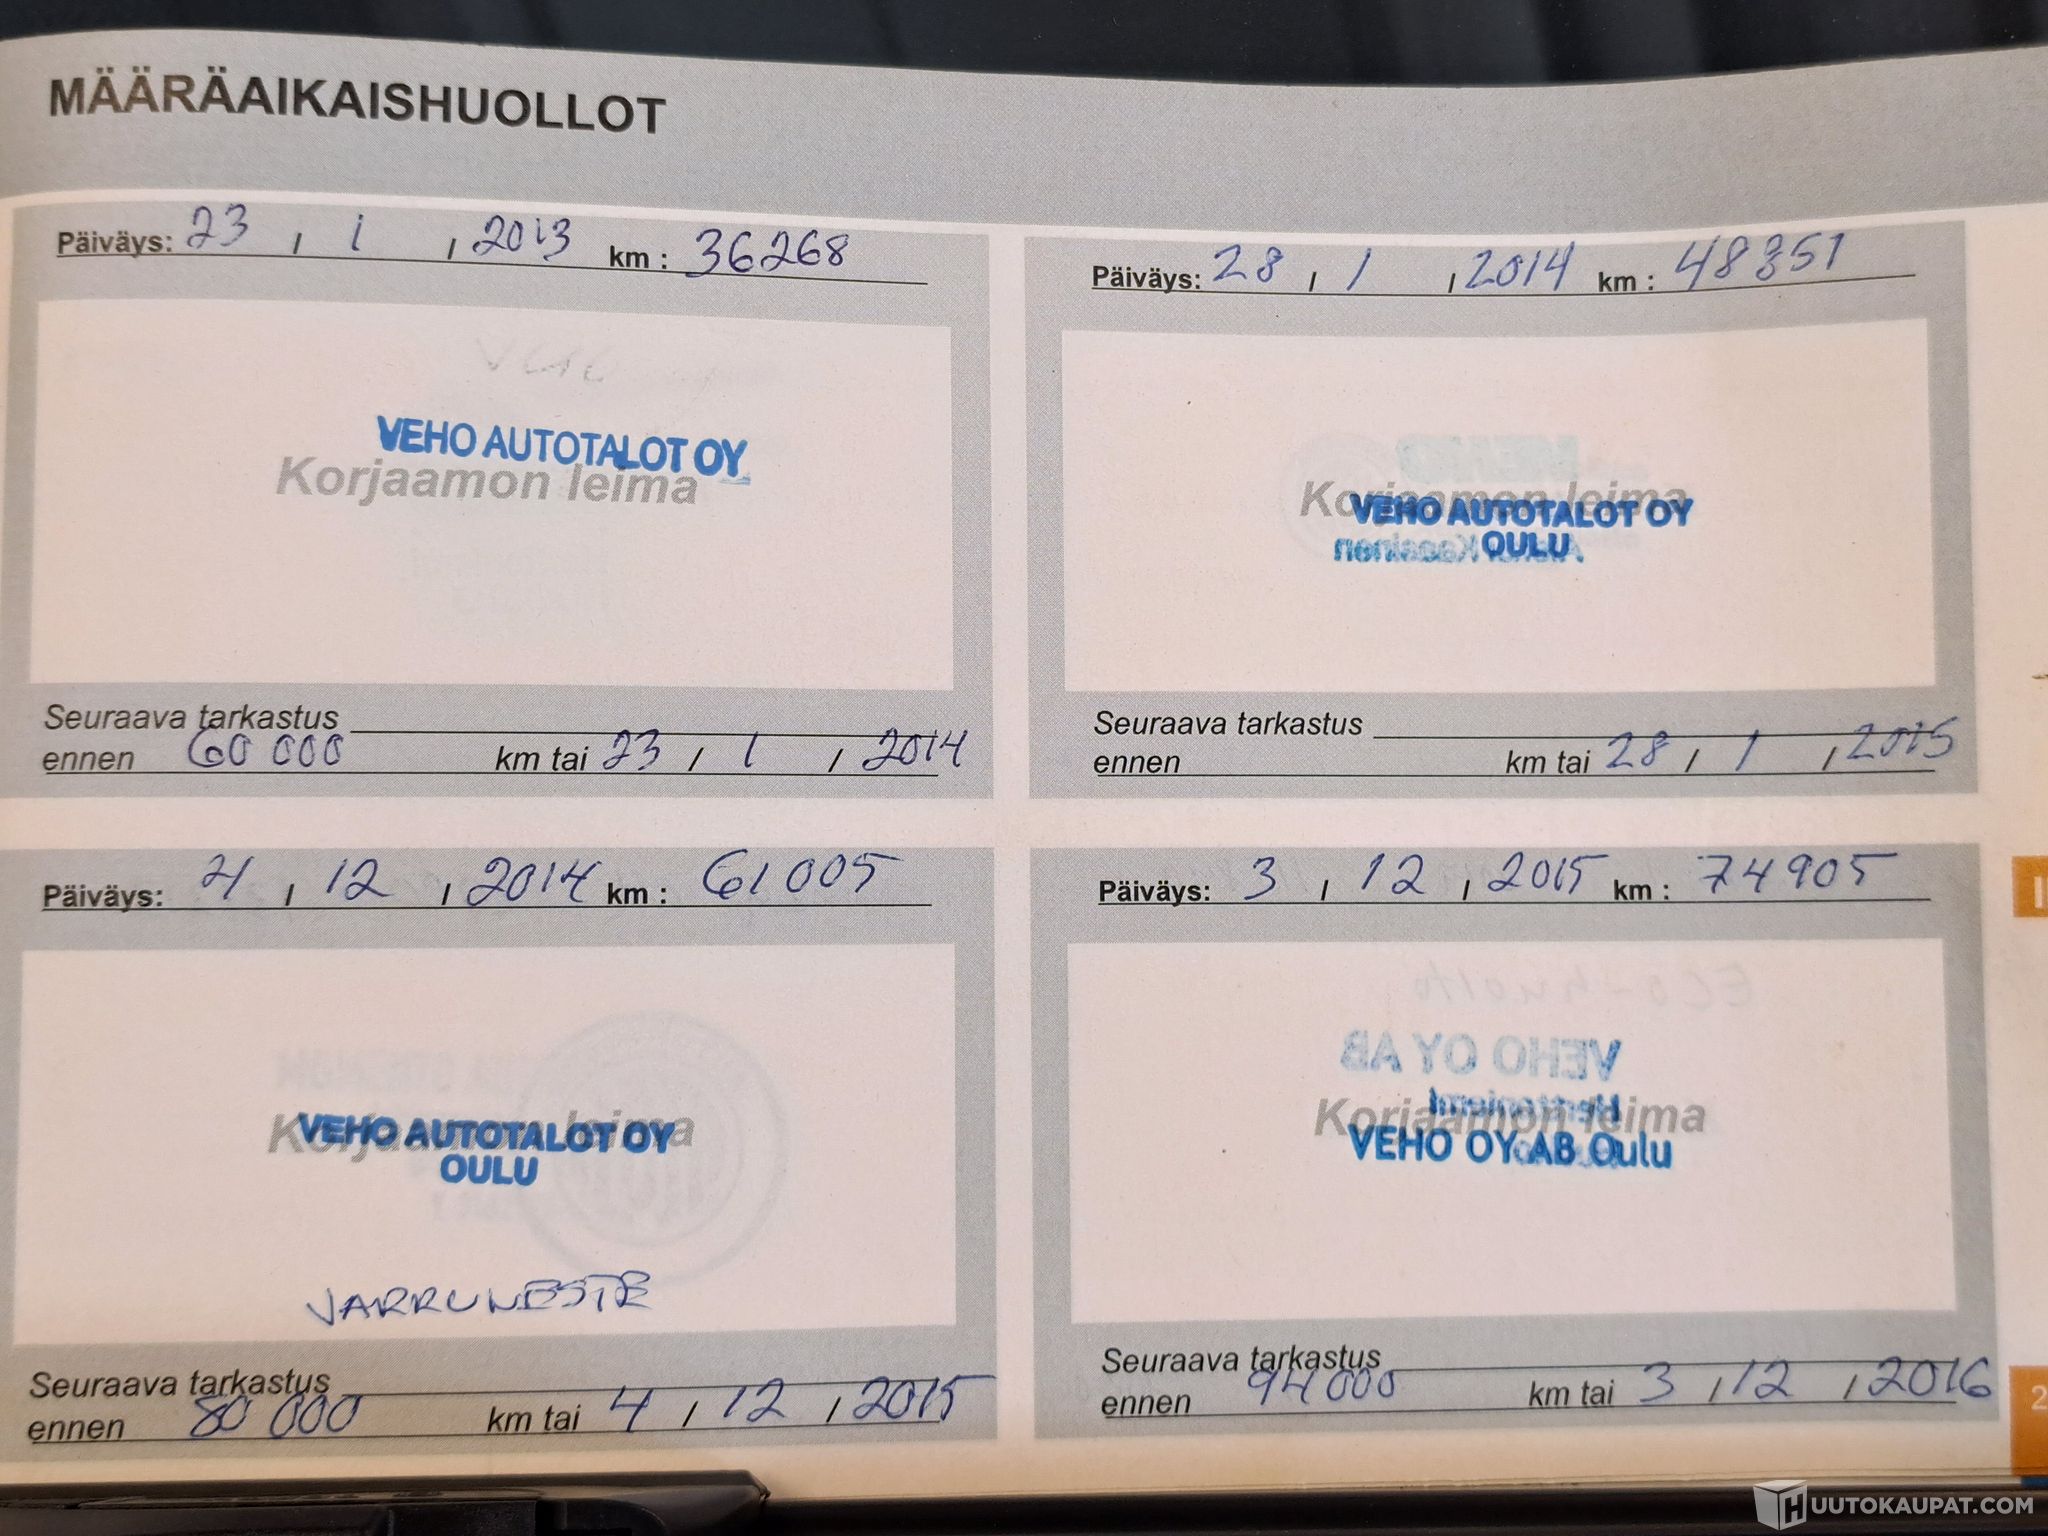 MÄÄRÄAIKAISHUOLLOT
Päiväys: 23 / 1 / 2013 km : 36268
VEHO AUTOTALOT OY
Korjaamon leima
Seuraava tarkastus
ennen 60 000 km tai 23 / 1 / 2014
Päiväys: 28 / 1 / 2014 km : 48351
Korjaamon leima
VEHO AUTOTALOT OY
OULU
Seuraava tarkastus
ennen km tai 28 / 1 / 2015
Päiväys: 4 / 12 / 2014 km : 61005
Korjaamon leima
VEHO AUTOTALOT OY
OULU
JARRUNESTE
Seuraava tarkastus
ennen 80 000 km tai 4 / 12 / 2015
Päiväys: 3 / 12 / 2015 km : 74905
ECO-huolto
VEHO OY AB
Herttoniemi
Korjaamon leima
VEHO OY AB Oulu
Seuraava tarkastus
ennen 94000 km tai 3 / 12 / 2016
2
HUUTOKAUPAT.COM